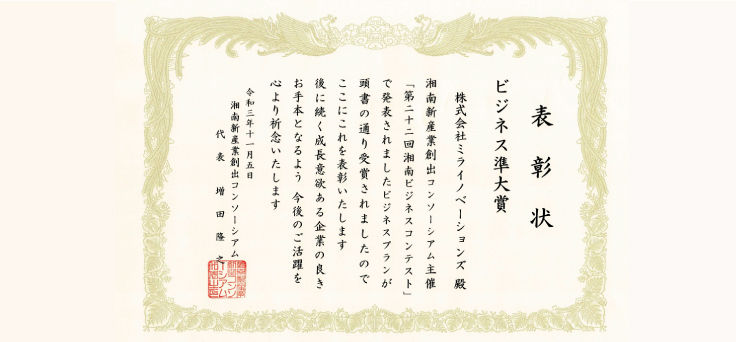 表彰状
ビジネス準大賞
株式会社ミライイノベーションズ 殿
湘南新産業創出コンソーシアム主催
「第二十二回湘南ビジネスコンテスト」
で発表されましたビジネスプランが
頭書の通り受賞されましたので
ここにこれを表彰いたします
後に続く成長意欲ある企業の良き
お手本となるよう 今後のご活躍を
心より祈念いたします
令和三年十一月五日
湘南新産業創出コンソーシアム
代表 増田隆之